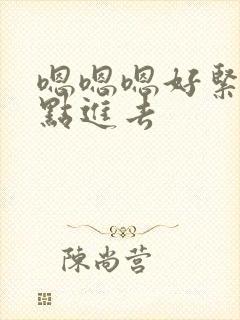 嗯嗯嗯好緊
點進去
陳尚营